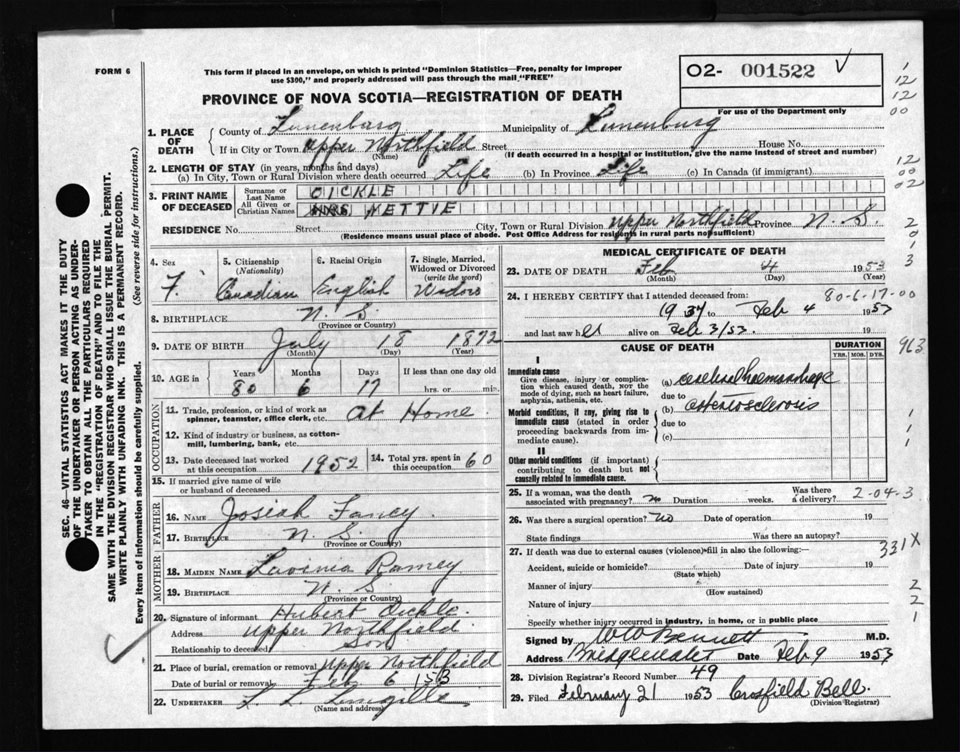 FORM 6
This form if placed in an envelope, on which is printed "Dominion Statistics—Free, penalty for improper
use $300," and properly addressed will pass through the mail "FREE"
O2- 001522
For use of the Department only
PROVINCE OF NOVA SCOTIA—REGISTRATION OF DEATH
1. PLACE OF DEATH
County of Lunenburg Municipality of Lunenburg
If in City or Town Upper Northfield Street House No.
(Name) (If death occurred in a hospital or institution, give the name instead of street and number)
2. LENGTH OF STAY (in years, months and days)
(a) In City, Town or Rural Division where death occurred Life (b) In Province Life (c) In Canada (if immigrant)
3. PRINT NAME OF DECEASED
Surname or Last Name OICKLE
All Given or Christian Names MRS HETTIE
RESIDENCE No. Street City, Town or Rural Division Upper Northfield Province N. S.
(Residence means usual place of abode. Post Office Address for residents in rural parts not sufficient)
4. Sex F.
5. Citizenship (Nationality) Canadian
6. Racial Origin English
7. Single, Married, Widowed or Divorced (write the word) Widow
8. BIRTHPLACE N. S.
(Province or Country)
9. DATE OF BIRTH July 18 1872
(Month) (Day) (Year)
10. AGE in Years 80 Months 6 Days 17 If less than one day old hrs. or min.
OCCUPATION
11. Trade, profession, or kind of work as spinner, teamster, office clerk, etc. At Home
12. Kind of industry or business, as cotten-mill, lumbering, bank, etc.
13. Date deceased last worked at this occupation 1952
14. Total yrs. spent in this occupation 60
15. If married give name of wife or husband of deceased
FATHER
16. NAME Josiah Fancy
17. BIRTHPLACE N. S.
(Province or Country)
MOTHER
18. MAIDEN NAME Lavinia Ramey
19. BIRTHPLACE N. S
(Province or Country)
20. Signature of informant Hubert Oickle
Address Upper Northfield
Relationship to deceased Son
21. Place of burial, cremation or removal Upper Northfield
Date of burial or removal Feb 6 1953
22. UNDERTAKER
(Name and address)
MEDICAL CERTIFICATE OF DEATH
23. DATE OF DEATH Feb 4 1953
(Month) (Day)
24. I HEREBY CERTIFY that I attended deceased from: 80-6-17-00
1937 to Feb 4 1953
and last saw her alive on Feb 3/53. 19
CAUSE OF DEATH
DURATION
YRS. MOS. DYS.
I
Immediate cause
Give disease, injury or complication which caused death, NOT the mode of dying, such as heart failure, asphyxia, asthenia, etc.
(a) cerebral haemorrhage
due to
Morbid conditions, if any, giving rise to immediate cause (stated in order proceeding backwards from immediate cause).
(b) arteriosclerosis
due to
(c)
II
Other morbid conditions (if important) contributing to death but not causally related to immediate cause.
25. If a woman, was the death associated with pregnancy? No Duration weeks. Was there a delivery? 2-04-3
26. Was there a surgical operation? No Date of operation 19
State findings Was there an autopsy?
331X
27. If death was due to external causes (violence) fill in also the following:—
Accident, suicide or homicide? Date of injury 19
(State which)
Manner of injury
(How sustained)
Nature of injury
Specify whether injury occurred in industry, in home, or in public place
Signed by W W Bennett M.D.
Address Bridgewater Date Feb 9 1953
28. Division Registrar's Record Number 49
29. Filed February 21 1953 Crosfield Bell.
(Division Registrar)
1
12
12
00
12
00
02
2
0
1
3
963
1
1
2
2
1
SEC. 46—VITAL STATISTICS ACT MAKES IT THE DUTY
OF THE UNDERTAKER OR PERSON ACTING AS UNDERTAKER
TO OBTAIN ALL THE PARTICULARS REQUIRED
IN THE "REGISTRATION OF DEATH" AND TO FILE THE
SAME WITH THE DIVISION REGISTRAR WHO SHALL ISSUE THE BURIAL PERMIT.
WRITE PLAINLY WITH UNFADING INK. THIS IS A PERMANENT RECORD.
Every item of Information should be carefully supplied. (See reverse side for instructions.)